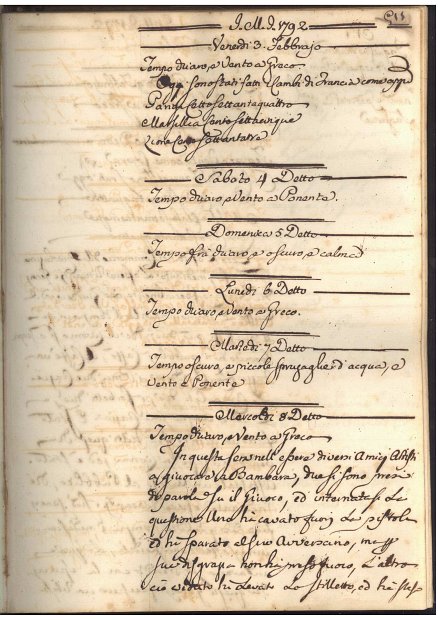 J. M. J. 1792
Venerdì 3. Febbrajo
Tempo chiaro, e Vento a Greco
Oggi sono stati fatti Cambi di Francia come app.
Parigi settosettantaquattro
Marsillia
Lione
Sabato 4 Detto
Tempo chiaro, e Vento a Ponente.
Domenica 5 Detto
Tempo frà chiaro, e oscuro, e calma
Lunedì 6 Detto
Tempo chiaro, e Vento a Greco.
Martedì 7 Detto
Tempo oscuro, e piccole spruzaglie d'acqua, e
Vento a Ponente
Mercoldì 8 Detto
Tempo chiaro, e Vento a Greco
In questa sera nell'essere diversi Amici
a giuocare la Bambara, due si sono presi
di parole su il Giuoco, ed internatasi la
questione Uno hà cavato fuori la pistola
ed hà sparato al suo Avversario, ma
sua disgrazia non hà preso fuoco, L'altro
ciò veduto hà levato lo stiletto, ed hà